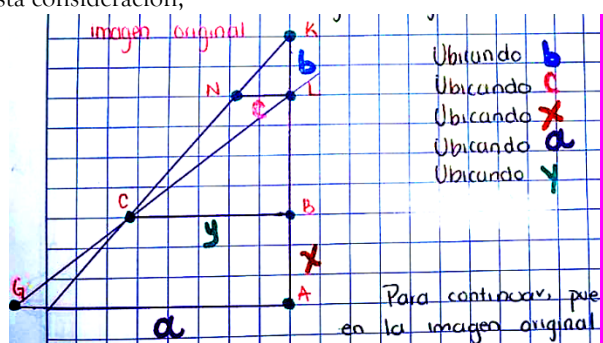 sta consideración,
imagen original
K
b
N
L
c
C
B
y
x
G
A
a
Ubicando b
Ubicando c
Ubicando x
Ubicando a
Ubicando y
Para continuar, pue
en la imagen original